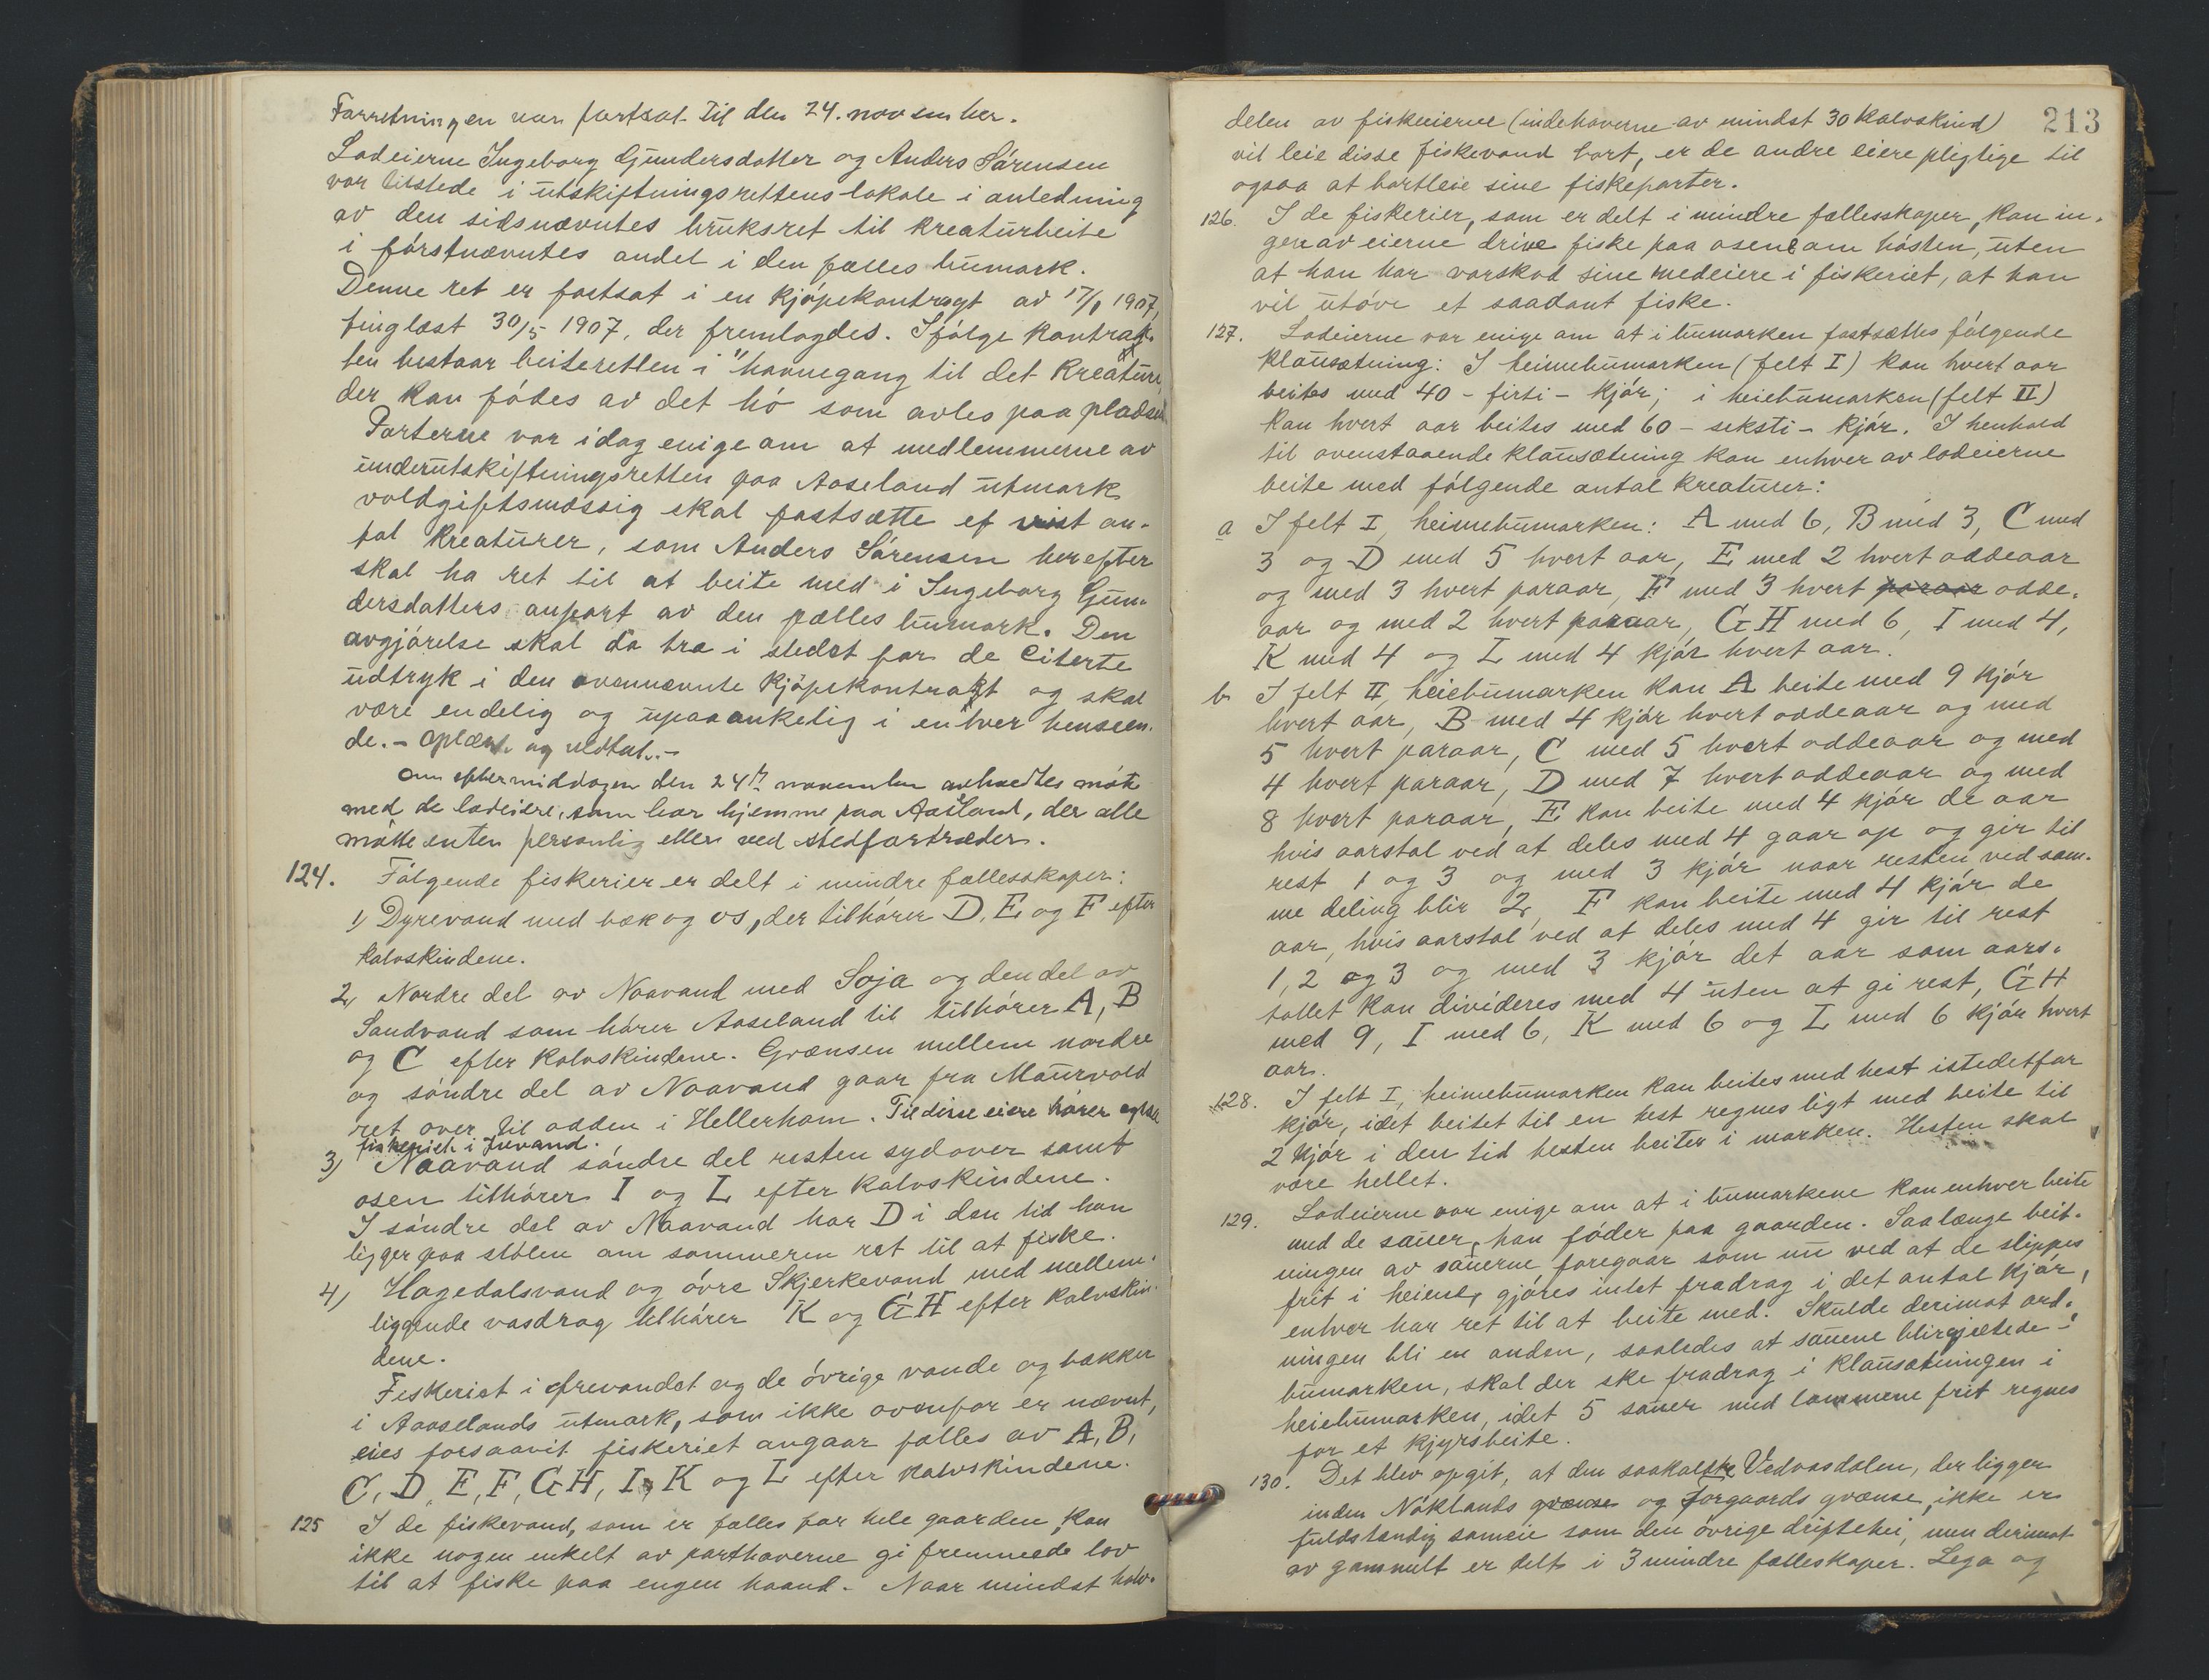 Forretningen var fortsat til den 24. november.
Lodeierne Ingeborg Gundersdatter og Anders Sørensen
var tilstede i utskiftningsrettens lokale i anledning
av den sidsnævntes bruksret til kreaturbeite
i førstnævntes andel i den fælles bumark.
Denne ret er fastsat i en kjøpekontragt av 17/1 1907,
tinglæst 30/5 1907, der fremlagdes. Ifølge kontrak-
ten bestaar beiteretten i "havnegang til det kreature,
der kan fødes av det hø som avles paa pladsen
Parterne var idag enige om at medlemmerne av
underutskiftningsretten paa Aaseland utmark
voldgiftsmæssig skal fastsætte et vist an-
tal kreaturer, som Anders Sørensen herefter
skal ha ret til at beite med i Ingeborg Gun-
dersdatters anpart av den fælles bumark. Den
avgjørelse skal da tra i stedet for de citerte
udtryk i den ovennævnte kjøpekontrakt og skal
være endelig og upaaankelig i enhver henseen-
de. - Oplæst og vedtat. -
Om eftermiddagen den 24de november avholdtes møte
med de lodeiere, som bor hjemme paa Aaseland, der alle
møtte enten personlig eller ved stedfortræder.
124. Følgende fiskerier er delt i mindre fællesskaper:
1) Dyrevand med bæk og os, der tilhører D, E og F efter
kalvskindene.
2) Nordre del av Naavand med Soja og den del av
Sandvand som hører Aaseland til tilhører A, B
og C efter kalvskindene. Grænsen mellem nordre
og søndre del av Naavand gaar fra Maurvold
ret over til odden i Hellerham. Til disse eiere hører ogsaa
fiskeriet i Juvand.
3) Naavand søndre del resten sydover samt
osen tilhører I og L efter kalvskindene.
I søndre del av Naavand har D i den tid han
ligger paa stølen om sommeren ret til at fiske.
4) Hagedalsvand og øvre Skjerkevand med mellem-
liggende vasdrag tilhører K og GH efter kalvskin-
dene.
Fiskeriet i Ørevandet og de øvrige vande og bækker
i Aaaselands utmark, som ikke ovenfor er nævnt,
eies forsaavit fiskeriet angaar fælles av A, B,
C, D, E, F, GH, I, K og L efter kalvskindene.
125 I de fiskevand, som er fælles for hele gaarden, kan
ikke nogen enkelt av parthaverne gi fremmede lov
til at fiske paa engen haand. - Naar mindst halv-
213
delen av fiskeeierne (indehaverne av mindst 30 kalvskind)
vil leie disse fiskevand bort, er de andre eiere pligtige til
ogsaa at bortleie sine fiskeparter.
126. I de fiskerier, som er delt i mindre fællesskaper, kan in-
gen av eierne drive fiske paa osene om høsten, uten
at han har varskod sine medeiere i fiskeriet, at han
vil utøve et saadant fiske.
127. Lodeierne var enige om at i bumarken fastsættes følgende
klausætning: I heimebumarken (felt I) kan hvert aar
beites med 40 - firti - kjør; i heiebumarken (felt II)
kan hvert aar beites med 60 - seksti - kjør. I henhold
til ovenstaaende klausætning kan enhver av lodeierne
beite med følgende antal kreaturer:
a I felt I, heimebumarken: A med 6, B med 3, C med
3 og D med 5 hvert aar, E med 2 hvert oddeaar
og med 3 hvert paraar, F med 3 hvert paraar odde-
aar og med 2 hvert paraar, GH med 6, I med 4,
K med 4 og L med 4 kjør hvert aar.
b I felt II, heiebumarken kan A beite med 9 kjør
hvert aar, B med 4 kjør hvert oddeaar og med
5 hvert paraar, C med 5 hvert oddeaar og med
4 hvert paraar, D med 7 hvert oddeaar og med
8 hvert paraar, E kan beite med 4 kjør de aar
hvis aarstal ved at deles med 4 gaar op og gir til
rest 1 og 3 og med 3 kjør naar resten ved sam-
me deling blir 2, F kan beite med 4 kjør de
aar, hvis aarstal ved at deles med 4 gir til rest
1, 2 og 3 og med 3 kjør det aar som aars-
tallet kan divideres med 4 uten at gi rest, GH
med 9, I med 6, K med 6 og L med 6 kjør hvert
aar.
128. I felt I, heimebumarken kan beites med hest istedetfor
kjør, idet beitet til en hest regnes ligt med beite til
2 kjør i den tid hesten beiter i marken. Hesten skal
være hellet.
129. Lodeierne var enige om at i bumarkene kan enhver beite
med de sauer, han føder paa gaarden. Saalænge beit-
ningen av sauerne foregaar som nu ved at de slippes
frit i heiene, gjøres intet fradrag i det antal kjør,
enhver har ret til at beite med. Skulde derimot ord-
ningen bli en anden, saaledes at sauene blir gjætede i
bumarken, skal der ske fradrag i klausætningen i
heiebumarken, idet 5 sauer med lammene frit regnes
for et kjyrsbeite.
130. Det blev opgit, at den saakalte Vedvasdalen, der ligger
inden Nøklands grænse og Forgaards grænse, ikke er
fuldstændig sameie som den øvrige driftehei, men derimot
av gammelt er delt i 3 mindre fælleskaper. Lega og